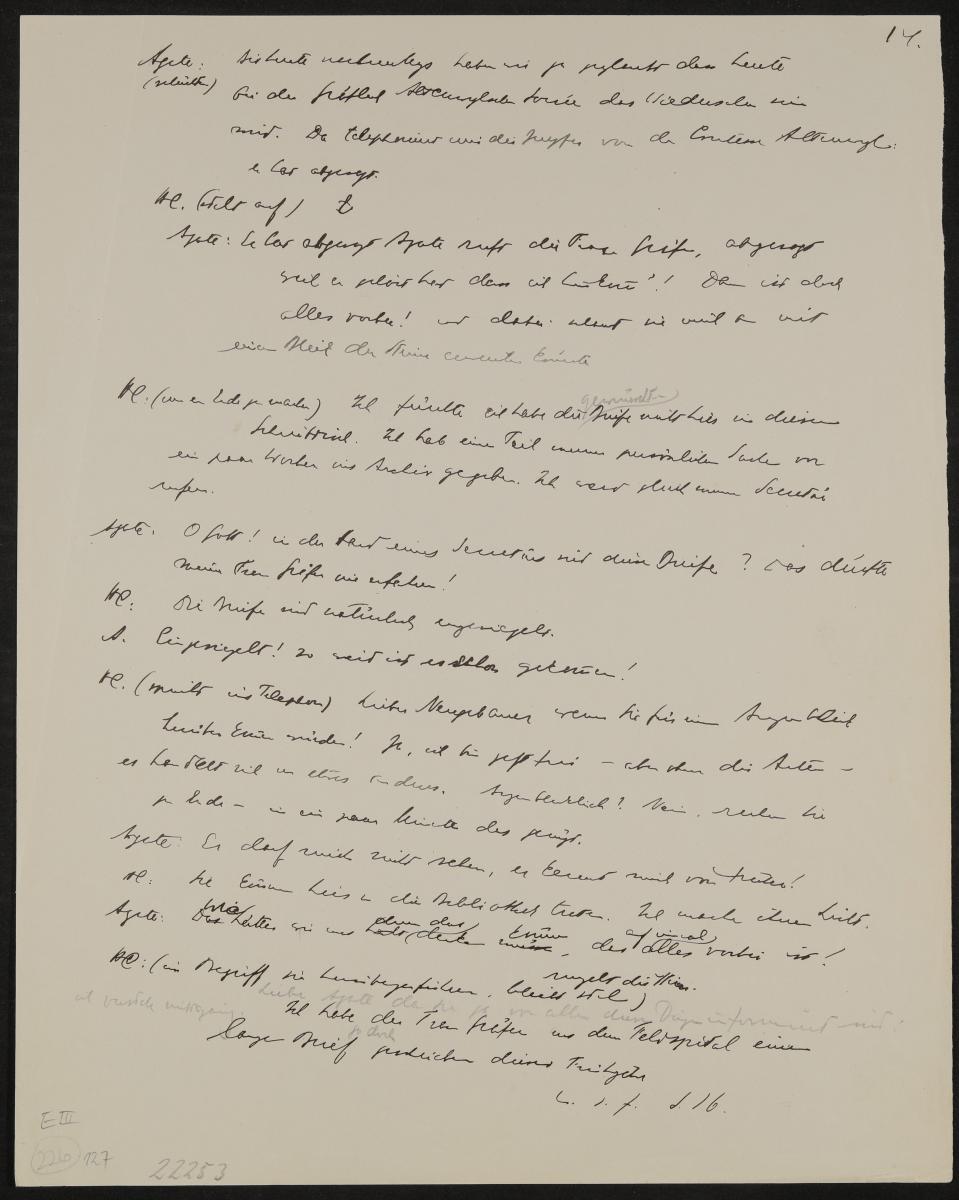 14.
Agate: Bis heute vormittags haben wir ja geglaubt dass heute
(schüttelt) bei der Gräflich Altenwylschen Soirée das Wiedersehn sein
wird. Da telephoniert mir die Jungfer von der Comtesse Altenwyl:
er hat abgesagt.
HC. (steht auf)
Agate: Er hat abgesagt Agate ruft die Frau Gräfin, abgesagt
weil er gehört hat dass ich hinkomm'! Dann ist doch
alles vorbei! und dabei weint sie und mit
einen Stein erweichen könnte
HC. (um ein Ende zu machen) Ich fürchte ich habe die gewünschten Briefe nicht hier in diesem
Schreibtisch. Ich hab einen Teil meiner persönlichen Sachen vor
ein paar Wochen ins Archiv gegeben. Ich werd gleich meinen Secretär
rufen.
Agate. O Gott! in der Hand eines Secretärs sind diese Briefe? Das dürfte
meine Frau Gräfin nie erfahren!
HC: Die Briefe sind natürlich eingesiegelt.
A. Eingesiegelt! so weit ist es schon gekommen!
HC. (spricht ins Telephon) Lieber Neugebauer wenn Sie für einen Augenblick
herüber kommen würden! Ja, ich bin jetzt frei – aber ohne die Akten –
es handelt sich um etwas anderes. Augenblicklich? Nein, rechnen Sie
zu Ende – in ein paar Minuten das genügt.
Agate: Er darf mich nicht sehen, er kennt mich von früher!
HC: Sie können hier in die Bibliothek treten. Ich mache ihnen Licht.
Agate: Wie hätten wir uns denn das denken können, dass auf einmal alles vorbei ist!
HC: (im Begriff sie hinüberzuführen, bleibt stehn) runzelt die Stirn.
Liebe Agate da Sie ja von allen diesen Dingen informiert sind:
Ich habe der Frau Gräfin aus dem Feldspital einen
langen Brief geschrieben dieses Frühjahr
S. 16.
E III
226 127
22253